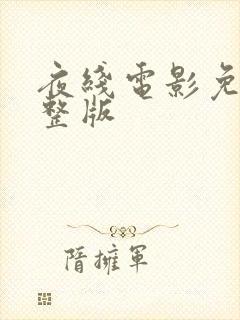 夜线電影免
整版
隋擁軍